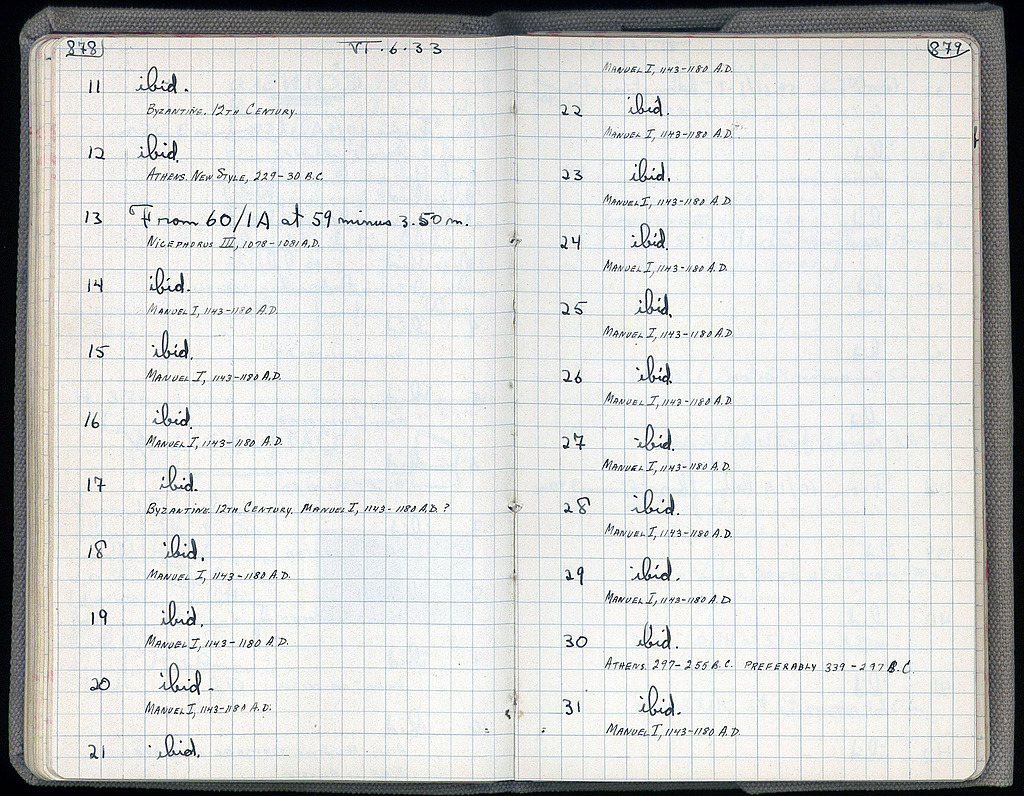 878
VI.6.33
11 ibid.
BYZANTINE. 12TH CENTURY.
12 ibid.
ATHENS. NEW STYLE, 229-30 B.C.
13 From 60/IA at 59 minus 3.50 m.
NICEPHORUS III, 1078-1081 A.D.
14 ibid.
MANUEL I, 1143-1180 A.D.
15 ibid.
MANUEL I, 1143-1180 A.D.
16 ibid.
MANUEL I, 1143-1180 A.D.
17 ibid.
BYZANTINE. 12TH CENTURY. MANUEL I, 1143-1180 A.D.?
18 ibid.
MANUEL I, 1143-1180 A.D.
19 ibid.
MANUEL I, 1143-1180 A.D.
20 ibid.
MANUEL I, 1143-1180 A.D.
21 ibid.
879
MANUEL I, 1143-1180 A.D.
22 ibid.
MANUEL I, 1143-1180 A.D.
23 ibid.
MANUEL I, 1143-1180 A.D.
24 ibid.
MANUEL I, 1143-1180 A.D.
25 ibid.
MANUEL I, 1143-1180 A.D.
26 ibid.
MANUEL I, 1143-1180 A.D.
27 ibid.
MANUEL I, 1143-1180 A.D.
28 ibid.
MANUEL I, 1143-1180 A.D.
29 ibid.
MANUEL I, 1143-1180 A.D.
30 ibid.
ATHENS. 297-255 B.C. PREFERABLY 339-297 B.C.
31 ibid.
MANUEL I, 1143-1180 A.D.